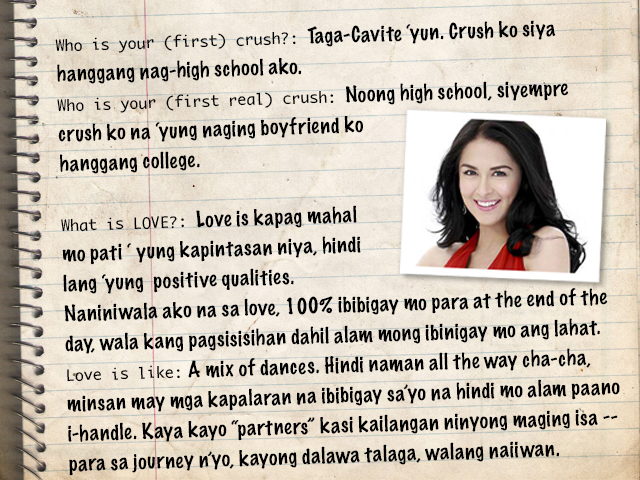 Who is your (first) crush?: Taga-Cavite ‘yun. Crush ko siya
hanggang nag-high school ako.
Who is your (first real) crush: Noong high school, siyempre
crush ko na ‘yung naging boyfriend ko
hanggang college.
What is LOVE?: Love is kapag mahal
mo pati ‘ yung kapintasan niya, hindi
lang ‘yung positive qualities.
Naniniwala ako na sa love, 100% ibibigay mo para at the end of the
day, wala kang pagsisisihan dahil alam mong ibinigay mo ang lahat.
Love is like: A mix of dances. Hindi naman all the way cha-cha,
minsan may mga kapalaran na ibibigay sa’yo na hindi mo alam paano
i-handle. Kaya kayo “partners” kasi kailangan ninyong maging isa --
para sa journey n’yo, kayong dalawa talaga, walang naiiwan.